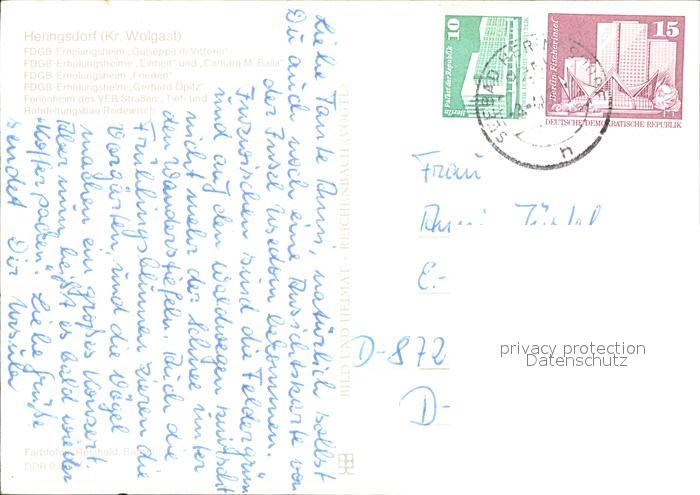 Heringsdorf (Kr. Wolgast)
FDGB-Erholungsheim „Guiseppe di Vittorio“
FDGB-Erholungsheime „Einheit“ und „Camara M. Balla“
FDGB-Erholungsheim „Frieden“
FDGB-Erholungsheim „Gerhard Opitz“
Ferienheim des VEB Straßen-, Tief- und
Rohrleitungsbau Rodewisch
Liebe Tante Anni, natürlich sollst
Du auch noch eine Ansichtskarte von
der Insel Usedom bekommen.
Inzwischen sind die Felder grün
und auf den Waldwegen knirscht
nicht mehr der Schnee unter
den Wanderstiefeln. Auch die
Frühlingsblumen zieren die
Vorgärten, und die Vögel
machen ein großes Konzert.
Aber nun heißt es bald wieder
„Koffer packen“. Liebe Grüße
sendet Dir Ursula
BILD UND HEIMAT · REICHENBACH
Farbfoto: Reinhold,
DDR
10
Berlin Palast der Republik
15
Berlin-Fischerinsel
DEUTSCHE DEMOKRATISCHE REPUBLIK
SEEBAD HERINGSDORF
h
Frau
Anni
E.-
D-872
D-
privacy protection
Datenschutz